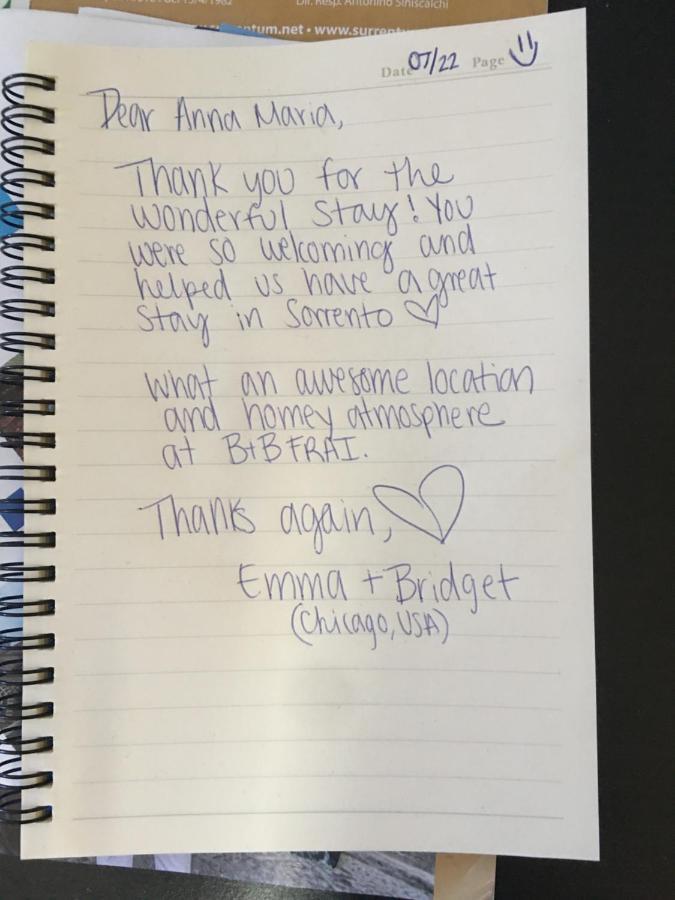 Dir. Resp. Antonino Siniscalchi
um.net • www.surrent
Date 07/22 Page
Dear Anna Maria,
Thank you for the
wonderful stay! You
were so welcoming and
helped us have a great
stay in Sorrento ♡
What an awesome location
and homey atmosphere
at B+B FRAI.
Thanks again, ♡
Emma + Bridget
(Chicago, USA)